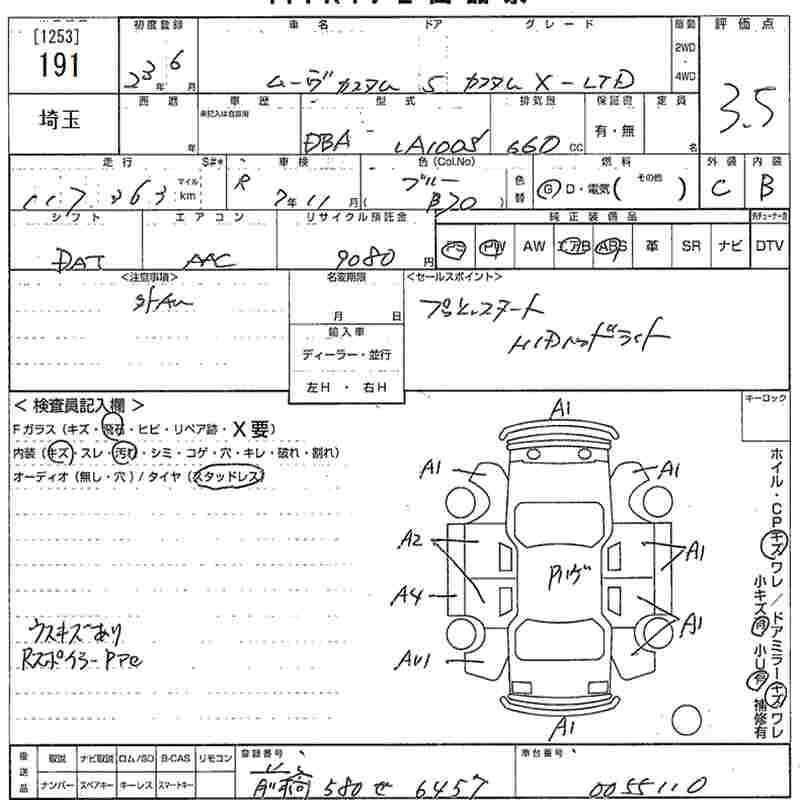 [1253]
191
埼玉
初度登録
23年 6月
車名 ドア グレード
ムーヴカスタム 5 カスタム X-LTD
駆動
2WD
・
4WD
評価点
3.5
西暦 年
車歴
未記入は自家用
型式
DBA LA100S
排気量
660 cc
保証書
有・無
定員
名
走行 S#*
117,363 マイル km
車検
R 7年 11月
色 (Col.No)
ブルー
( B70 )
色替
燃料
Ⓖ D・電気 ( その他 )
外装
C
内装
B
シフト
DAT
エアコン
AAC
リサイクル預託金
9080 円
純正装備品
PS PW AW エアB ABS 革 SR ナビ
DTV
<注意事項>
名変期限
月 日
輸入車
ディーラー・並行
左H ・ 右H
<セールスポイント>
プッシュスタート
HIDヘッドライト
＜ 検査員記入欄 ＞
Fガラス (キズ・飛石・ヒビ・リペア跡・X要)
内装 (キズ・スレ・汚れ・シミ・コゲ・穴・キレ・破れ・割れ)
オーディオ (無し・穴) / タイヤ (スタッドレス)
ウスキズあり
キーロック
A1
A1 A1
A2 A1
A4 A1
AU1
A1
ホイル・CPキズワレ/ドアミラーキズワレ
小キズ有 小U有 補修有
後送品
取説 ナビ取説 ロム/SD B-CAS リモコン
ナンバー スペアキー キーレス スマートキー
登録番号
前橋 580 せ 6457
車台番号
0055110